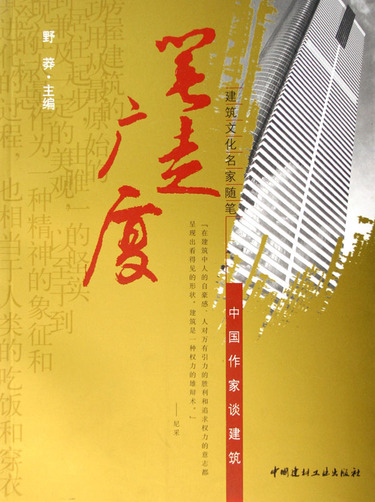 野莽·主编
笔走
广厦
建筑文化名家随笔
中国作家谈建筑
“在建筑中人的自豪感、人对万有引力的胜利和追求权力的意志都
呈现出看得见的形状。建筑是一种权力的雄辩术。”
——尼采
种精神的象征和
的过程，也相当于人类的吃饭和穿衣
中国建材工业出版社